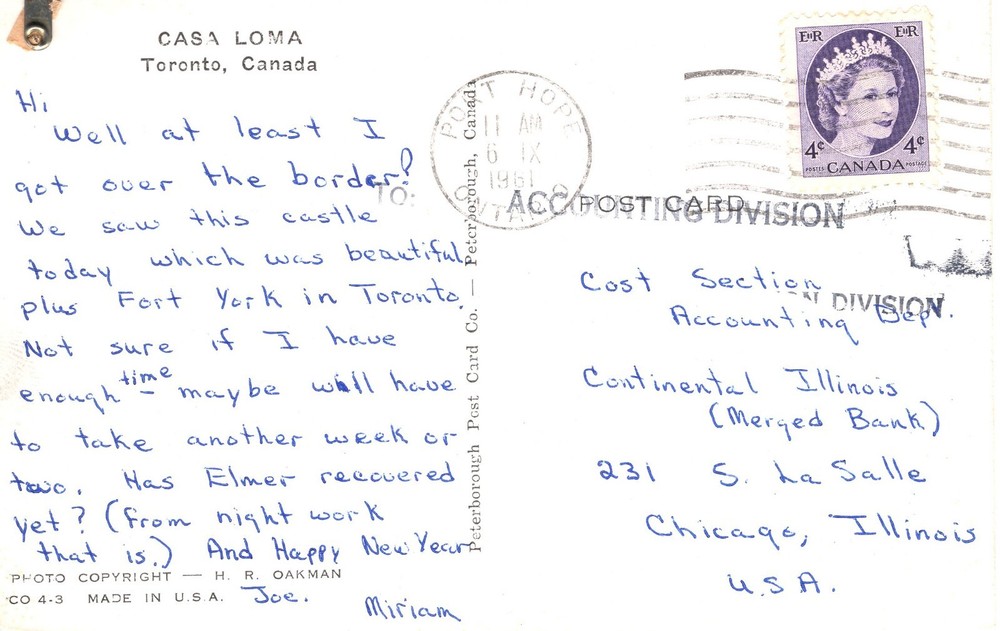 CASA LOMA
Toronto, Canada
Hi
Well at least I
got over the border!
We saw this castle
today which was beautiful
plus Fort York in Toronto.
Not sure if I have
enough time - maybe will have
to take another week or
two. Has Elmer recovered
yet? (from night work
that is.) And Happy New Year
Joe. Miriam
PHOTO COPYRIGHT — H. R. OAKMAN
CO 4-3 MADE IN U.S.A.
Peterborough Post Card Co. — Peterborough, Canada
PORT HOPE
11 AM
6 IX
1961
ONTARIO
EIIR EIIR
4¢ 4¢
POSTES CANADA POSTAGE
TO: ACCOUNTING DIVISION
POST CARD
N DIVISION
Cost Section
Accounting Dep.
Continental Illinois
(Merged Bank)
231 S. La Salle
Chicago, Illinois
U.S.A.